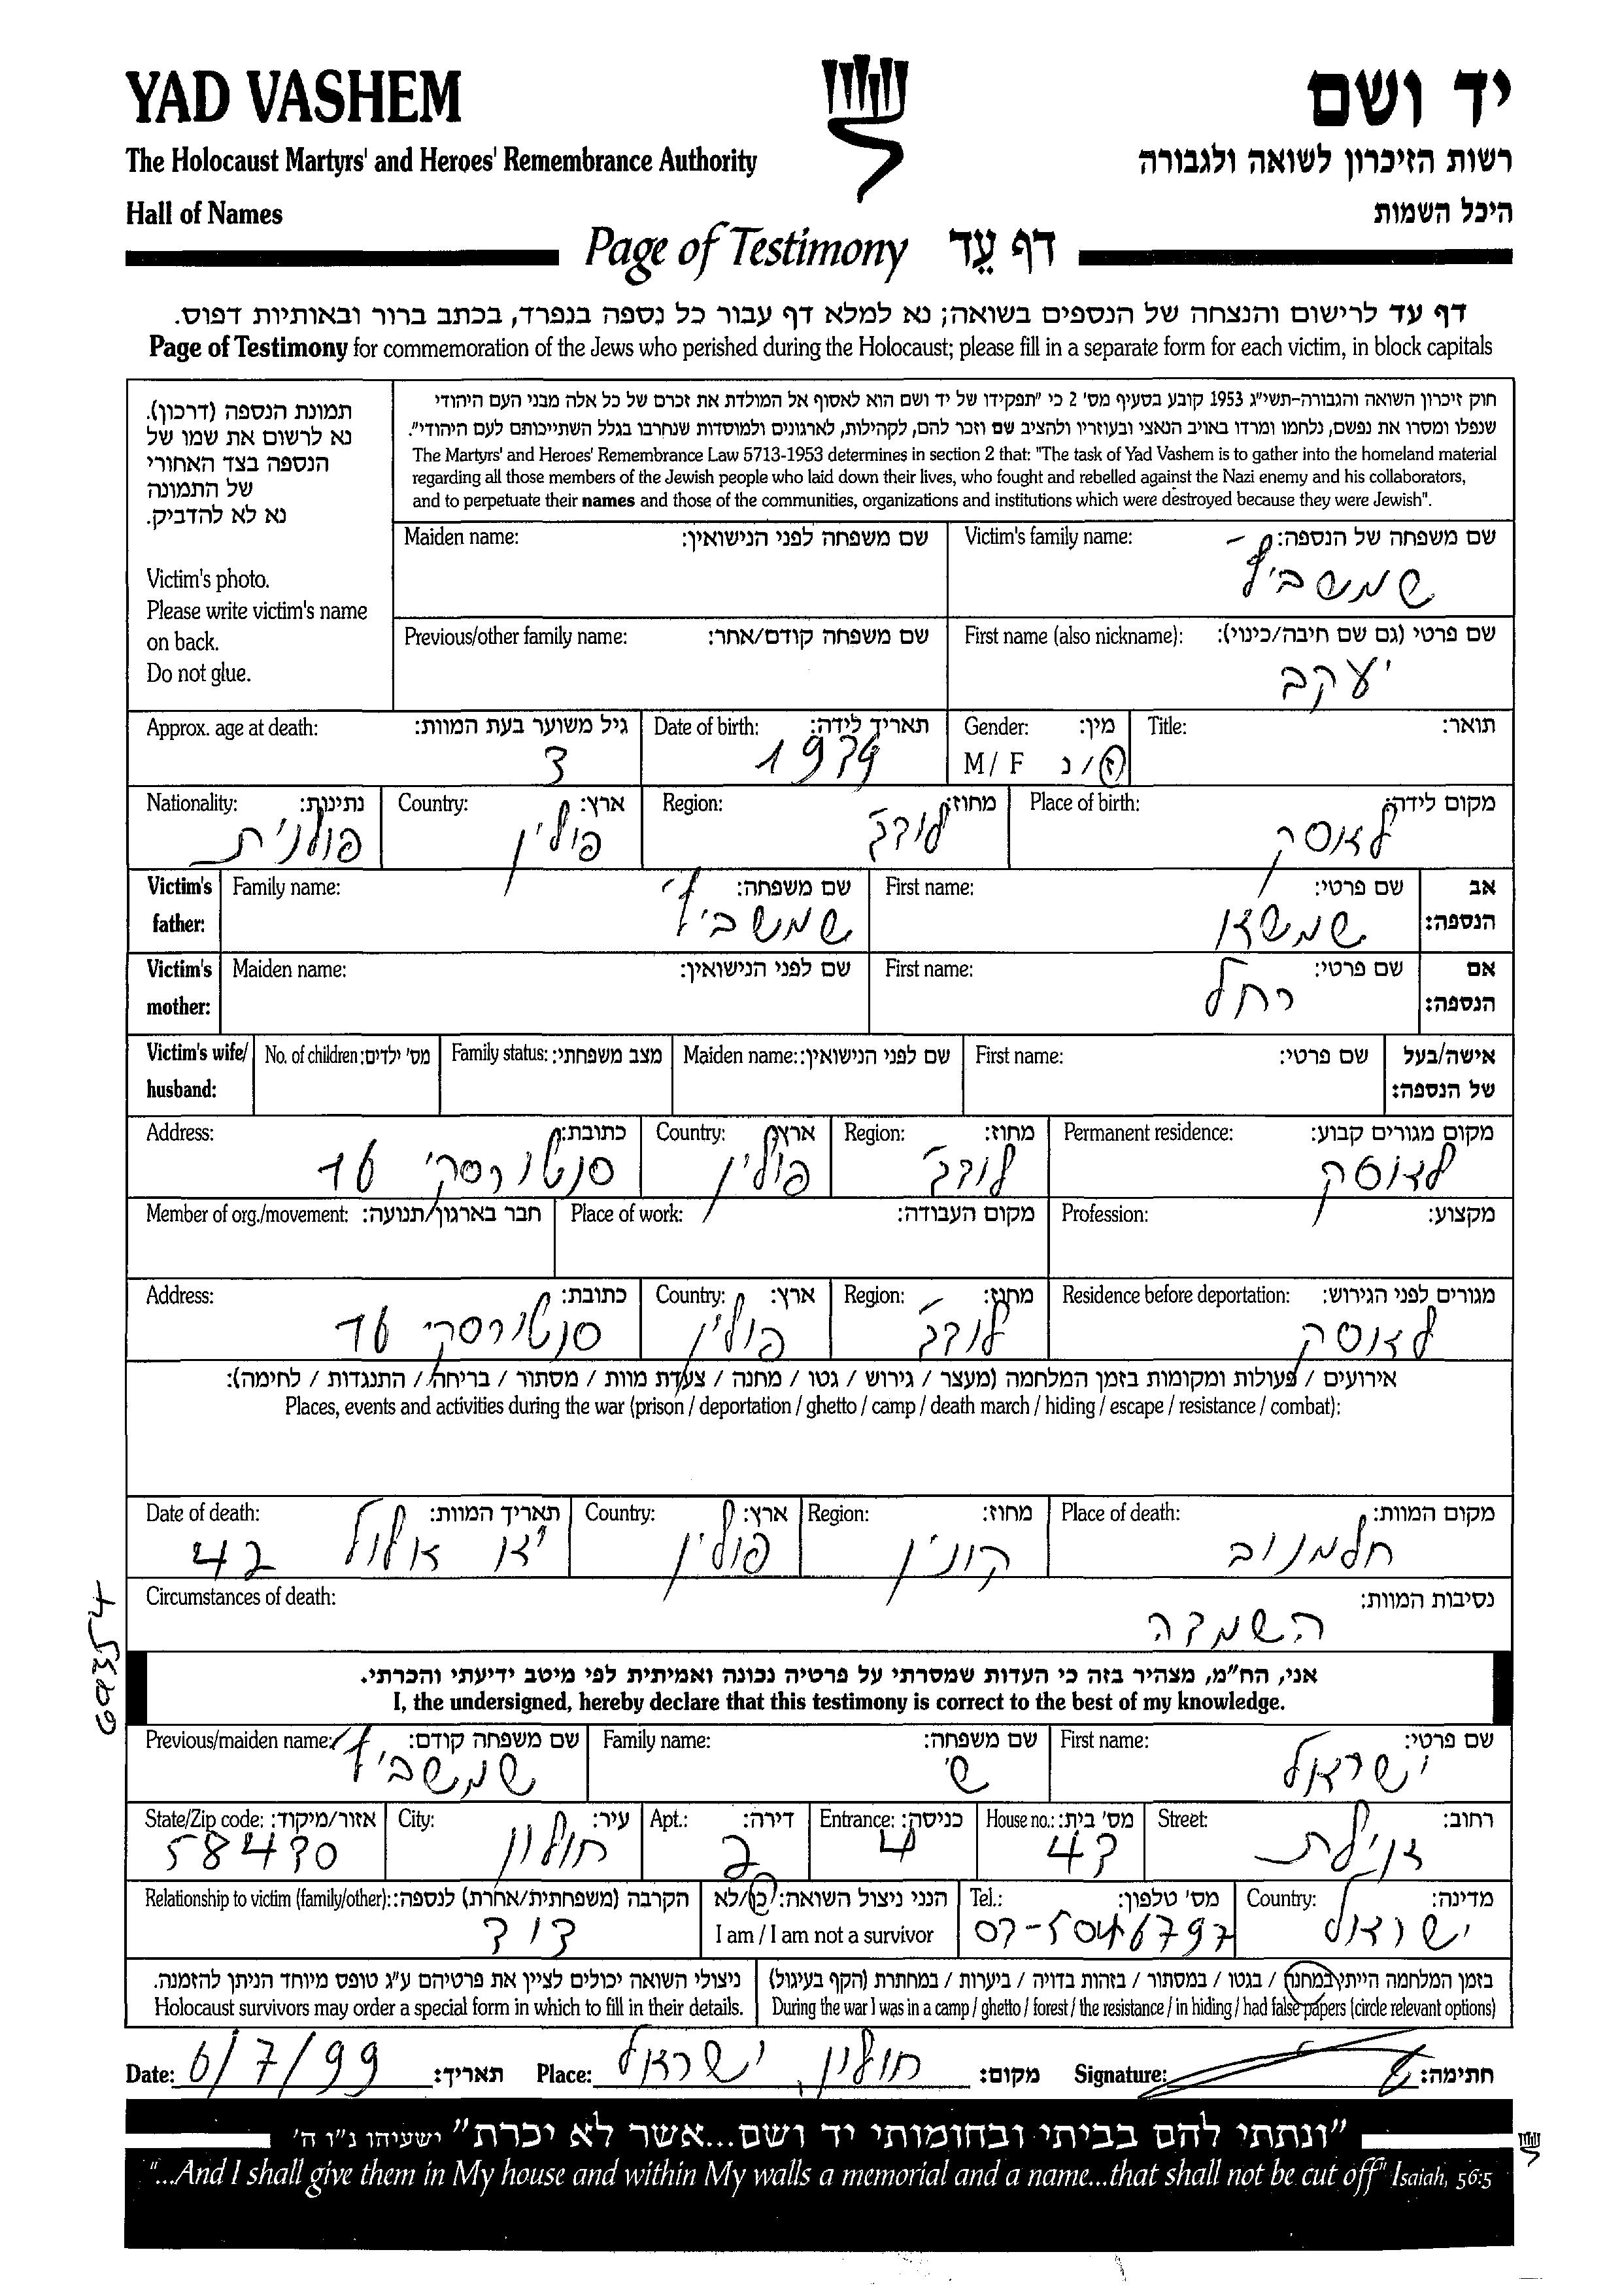 YAD VASHEM
יד ושם
The Holocaust Martyrs' and Heroes' Remembrance Authority
רשות הזיכרון לשואה ולגבורה
Hall of Names
היכל השמות
Page of Testimony דף עֵד
דף עד לרישום והנצחה של הנספים בשואה; נא למלא דף עבור כל נספה בנפרד, בכתב ברור ובאותיות דפוס.
Page of Testimony for commemoration of the Jews who perished during the Holocaust; please fill in a separate form for each victim, in block capitals
תמונת הנספה (דרכון).
נא לרשום את שמו של
הנספה בצד האחורי
של התמונה
נא לא להדביק.
Victim's photo.
Please write victim's name
on back.
Do not glue.
חוק זיכרון השואה והגבורה-תשי"ג 1953 קובע בסעיף מס' 2 כי "תפקידו של יד ושם הוא לאסוף אל המולדת את זכרם של כל אלה מבני העם היהודי
שנפלו ומסרו את נפשם, נלחמו ומרדו באויב הנאצי ובעוזריו ולהציב שם וזכר להם, לקהילות, לארגונים ולמוסדות שנחרבו בגלל השתייכותם לעם היהודי".
The Martyrs' and Heroes' Remembrance Law 5713-1953 determines in section 2 that: "The task of Yad Vashem is to gather into the homeland material
regarding all those members of the Jewish people who laid down their lives, who fought and rebelled against the Nazi enemy and his collaborators,
and to perpetuate their names and those of the communities, organizations and institutions which were destroyed because they were Jewish".
Victim's family name: שם משפחה של הנספה:
שמשביץ'
Maiden name: שם משפחה לפני הנישואין:
First name (also nickname): שם פרטי (גם שם חיבה/כינוי):
יעקב
Previous/other family name: שם משפחה קודם/אחר:
Title: תואר:
Gender: מין:
M / F ז/נ
Date of birth: תאריך לידה:
1939
Approx. age at death: גיל משוער בעת המוות:
3
Place of birth: מקום לידה:
לאסק
Region: מחוז:
לודז'
Country: ארץ:
פולין
Nationality: נתינות:
פולנית
Victim's father: אב הנספה:
First name: שם פרטי:
שמשון
Family name: שם משפחה:
שמשביץ'
Victim's mother: אם הנספה:
First name: שם פרטי:
רחל
Maiden name: שם לפני הנישואין:
Victim's wife/ husband: אישה/בעל של הנספה:
First name: שם פרטי:
Maiden name: שם לפני הנישואין:
Family status: מצב משפחתי:
No. of children: מס' ילדים:
Permanent residence: מקום מגורים קבוע:
לאסק
Region: מחוז:
לודז'
Country: ארץ:
פולין
Address: כתובת:
Profession: מקצוע:
Place of work: מקום העבודה:
Member of org./movement: חבר בארגון/תנועה:
Residence before deportation: מגורים לפני הגירוש:
לאסק
Region: מחוז:
לודז'
Country: ארץ:
פולין
Address: כתובת:
אירועים / פעולות ומקומות בזמן המלחמה (מעצר / גירוש / גטו / מחנה / צעדת מוות / מסתור / בריחה / התנגדות / לחימה):
Places, events and activities during the war (prison / deportation / ghetto / camp / death march / hiding / escape / resistance / combat):
Place of death: מקום המוות:
חלמנוב
Region: מחוז:
קונין
Country: ארץ:
פולין
Date of death: תאריך המוות:
אלול 42
Circumstances of death: נסיבות המוות:
השמדה
אני, הח"מ, מצהיר בזה כי העדות שמסרתי על פרטיה נכונה ואמיתית לפי מיטב ידיעתי והכרתי.
I, the undersigned, hereby declare that this testimony is correct to the best of my knowledge.
First name: שם פרטי:
ישראל
Family name: שם משפחה:
Previous/maiden name: שם משפחה קודם:
שמשביץ'
Street: רחוב:
אילת
House no.: מס' בית:
43
Entrance: כניסה:
4
Apt.: דירה:
2
City: עיר:
חולון
State/Zip code: אזור/מיקוד:
58430
Country: מדינה:
ישראל
Tel.: מס' טלפון:
03-5046797
הנני ניצול השואה: כן/לא
I am / I am not a survivor
Relationship to victim (family/other): הקרבה (משפחתית/אחרת) לנספה:
דוד
בזמן המלחמה הייתי במחנה / בגטו / במסתור / בזהות בדויה / ביערות / במחתרת (הקף בעיגול)
During the war I was in a camp / ghetto / forest / the resistance / in hiding / had false papers (circle relevant options)
ניצולי השואה יכולים לציין את פרטיהם ע"ג טופס מיוחד הניתן להזמנה.
Holocaust survivors may order a special form in which to fill in their details.
Date: 6/7/99 תאריך: Place: חולון, ישראל מקום: Signature: חתימה:
"ונתתי להם בביתי ובחומותי יד ושם...אשר לא יכרת" ישעיהו נ"ו ה'
"...And I shall give them in My house and within My walls a memorial and a name...that shall not be cut off" Isaiah, 56:5